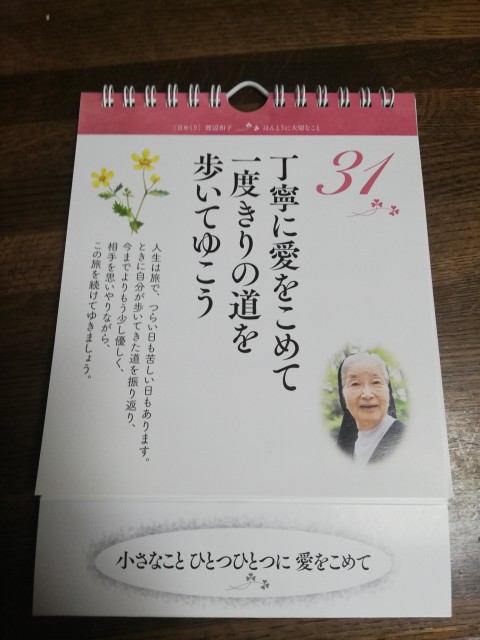 ［日めくり］ 渡辺和子 ほんとうに大切なこと
31
丁寧に愛をこめて
一度きりの道を
歩いてゆこう
人生は旅で、つらい日も苦しい日もあります。
ときに自分が歩いてきた道を振り返り、
今までよりもう少し優しく、
相手を思いやりながら、
この旅を続けてゆきましょう。
小さなこと ひとつひとつに 愛をこめて